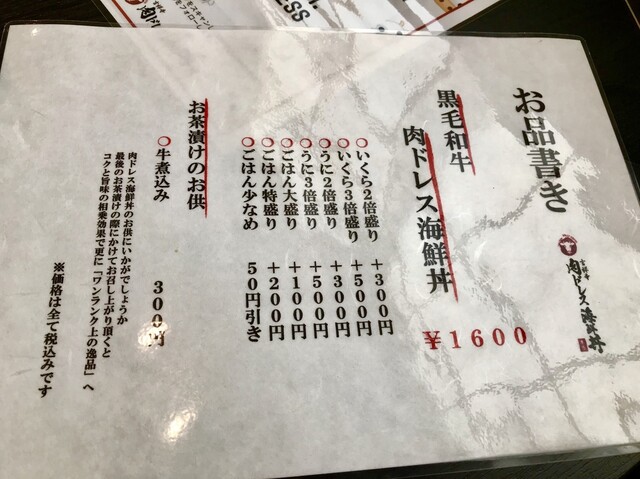 お品書き
肉ドレス海鮮丼
黒毛和牛
肉ドレス海鮮丼
￥1600
○いくら2倍盛り ＋300円
○いくら3倍盛り ＋500円
○うに2倍盛り ＋300円
○うに3倍盛り ＋500円
○ごはん大盛り ＋100円
○ごはん特盛り ＋200円
○ごはん少なめ 50円引き
お茶漬けのお供
○牛煮込み 300円
肉ドレス海鮮丼のお供にいかがでしょうか
最後のお茶漬けの際にかけてお召し上がり頂くと
コクと旨味の相乗効果で更に「ワンランク上の逸品」へ
※価格は全て税込みです